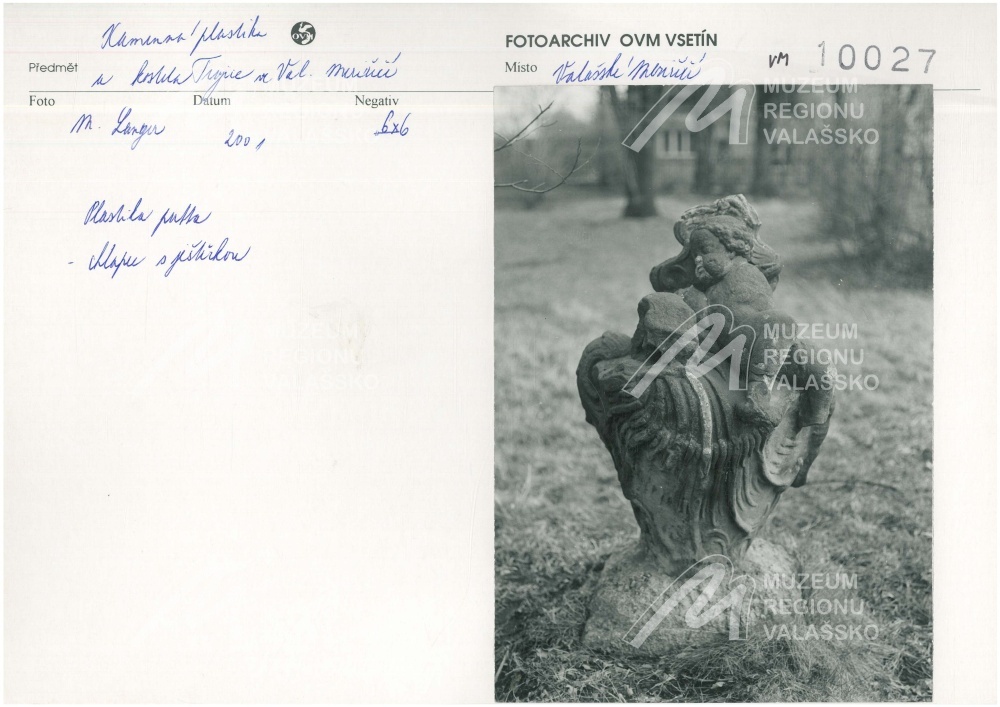 Kamenná plastika
OVM
Předmět u kostela Trojice ve Val. Meziříčí
Foto Datum Negativ
M. Langer 2001 6x6
Plastika putta
- chlapec s ještěrkou
FOTOARCHIV OVM VSETÍN
Místo Valašské Meziříčí VM 10027
MUZEUM
REGIONU
VALAŠSKO
MUZEUM
REGIONU
VALAŠSKO
MUZEUM
REGIONU
VALAŠSKO
MUZEUM
REGIONU
VALAŠSKO
MUZEUM
REGIONU
VALAŠSKO
MUZEUM
REGIONU
VALAŠSKO